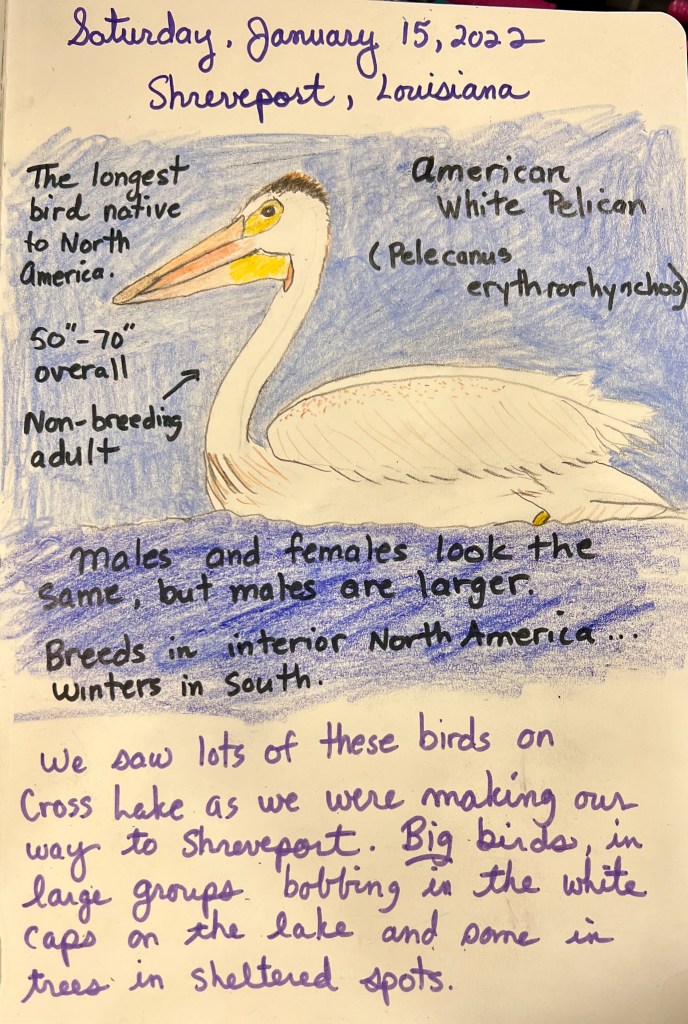 Saturday, January 15, 2022
Shreveport, Louisiana
The longest
bird native
to North
America.
American
White Pelican
(Pelecanus
erythrorhynchos)
50"-70"
overall
Non-breeding
adult
Males and females look the
same, but males are larger.
Breeds in interior North America...
winters in South.
We saw lots of these birds on
Cross Lake as we were making our
way to Shreveport. Big birds, in
large groups bobbing in the white
caps on the lake and some in
trees in sheltered spots.